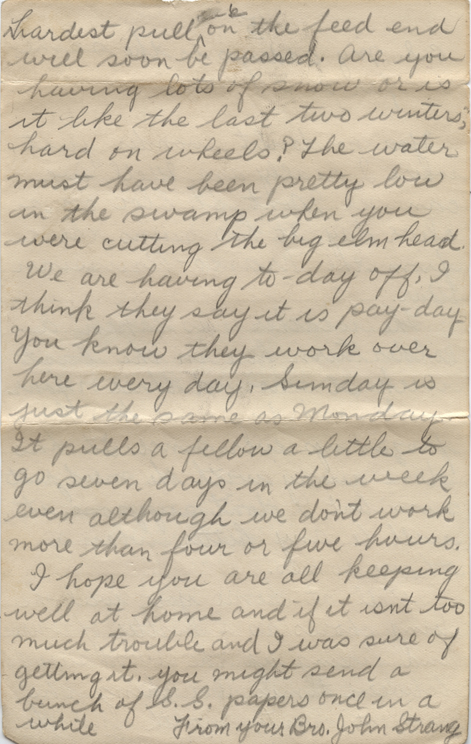 hardest pull on the feed end
will soon be passed. Are you
having lots of snow or is
it like the last two winters,
hard on wheels? The water
must have been pretty low
in the swamp when you
were cutting the big elm head.
We are having to-day off, I
think they say it is pay-day
You know they work over
here every day, Sunday is
just the same as Monday.
It pulls a fellow a little to
go seven days in the week
even although we don't work
more than four or five hours.
I hope you are all keeping
well at home and if it isnt too
much trouble and I was sure of
getting it, you might send a
bunch of S.S. papers once in a
while From your Bro. John Strang